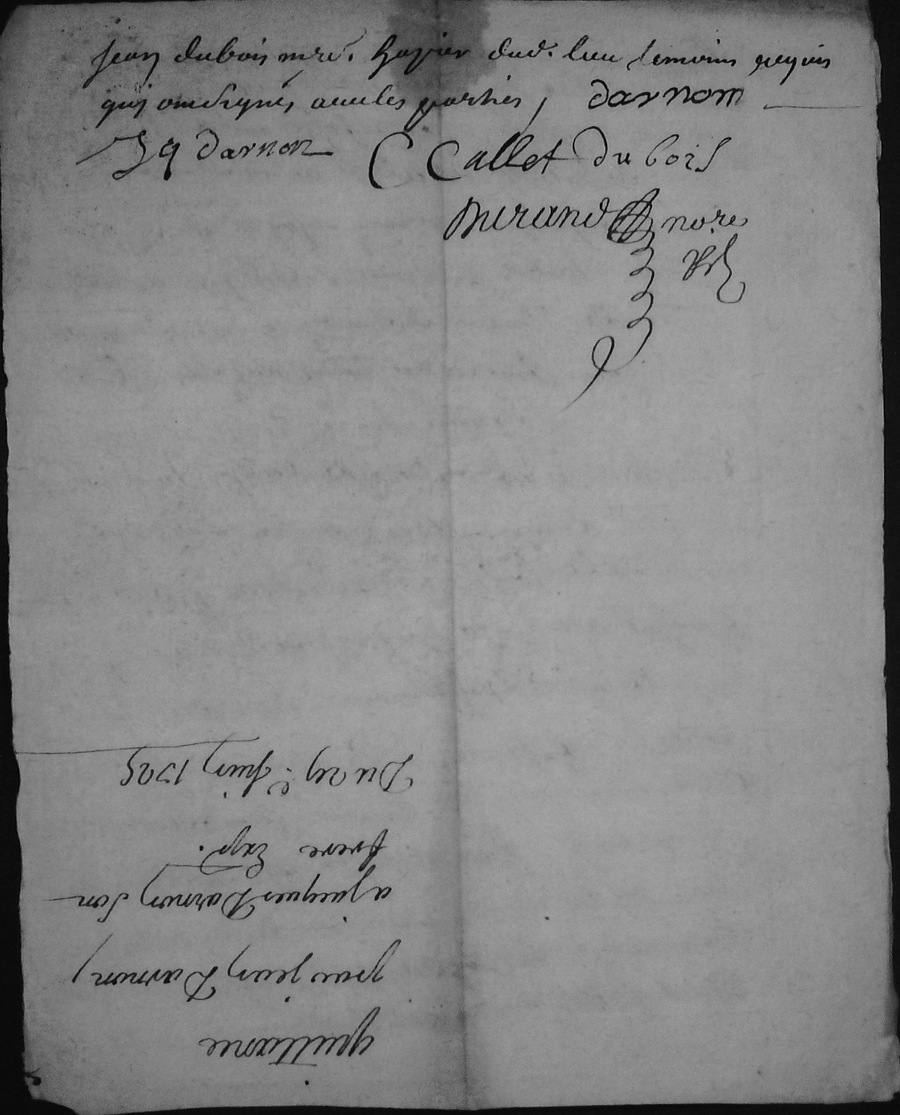 jean dubois mre. hozier dud. lieu temoins requis
qui ont signés avec les parties, darnom
Jq darnon C Callet du bois
Durand nore
Rl
quittance
pour jean Darnon
a jacques Darnon son
frere Exp.
Du 29e. Juin 1725